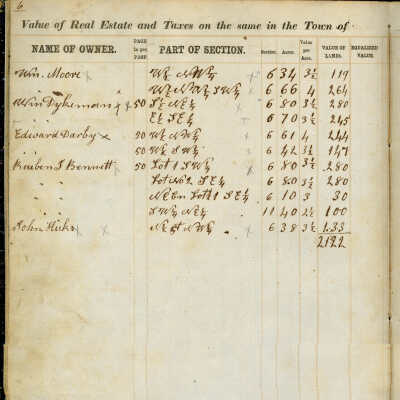 6
Value of Real Estate and Taxes on the same in the Town of
NAME OF OWNER. PAGE in per POST PART OF SECTION. Section. Acres. Value per Acre. VALUE OF LANDS. EQUALIZED VALUE.
Wm. Moore x W½ NW¼ 6 34 3½ 119
" " W½ N½ SW¼ 6 66 4 264
Wm Dykeman x x 50 S½ NE¼ 6 80 3½ 280
E½ SE¼ 6 70 3½ 245
Edward Darby x 50 W½ NW¼ 6 61 4 244
" " 50 W½ SW¼ 6 42 3½ 147
Reuben S Bennett 50 Lot 1 SW¼ 6 80 3½ 280
" " Lot No 2 SE¼ 6 80 3½ 280
" " NE Lot 1 SE¼ 6 10 3 30
" " SW¼ NE¼ 11 40 2½ 100
John Hicks x x NW¼ 6 38 3½ 133
2122